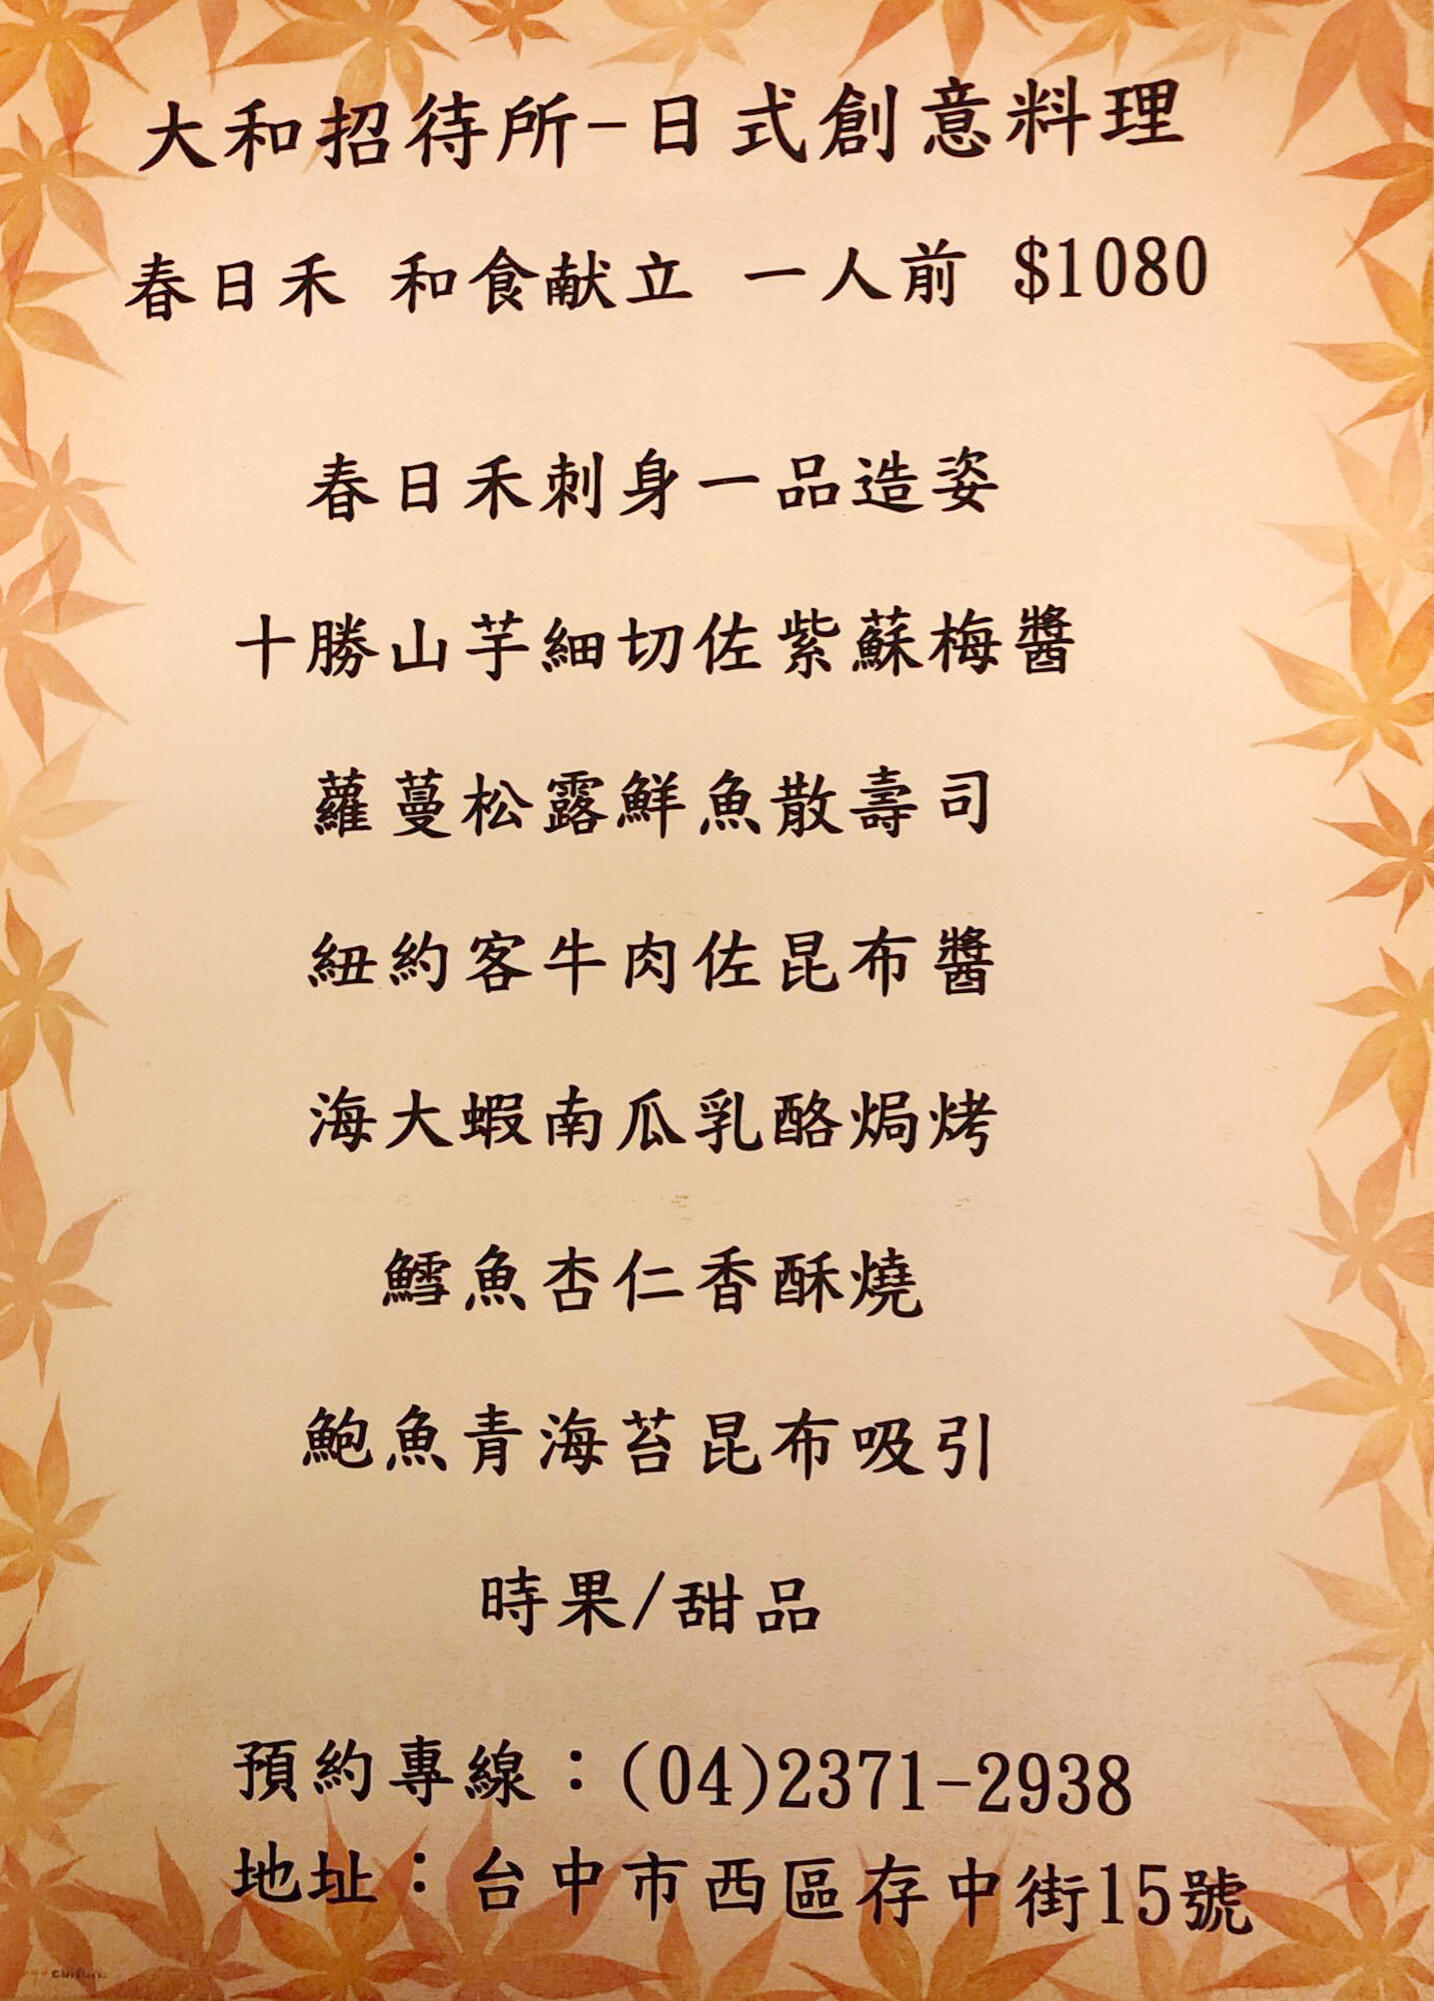 大和招待所-日式創意料理
春日禾 和食献立 一人前 $1080
春日禾刺身一品造姿
十勝山芋細切佐紫蘇梅醬
蘿蔓松露鮮魚散壽司
紐約客牛肉佐昆布醬
海大蝦南瓜乳酪焗烤
鱈魚杏仁香酥燒
鮑魚青海苔昆布吸引
時果/甜品
預約專線：(04)2371-2938
地址：台中市西區存中街15號